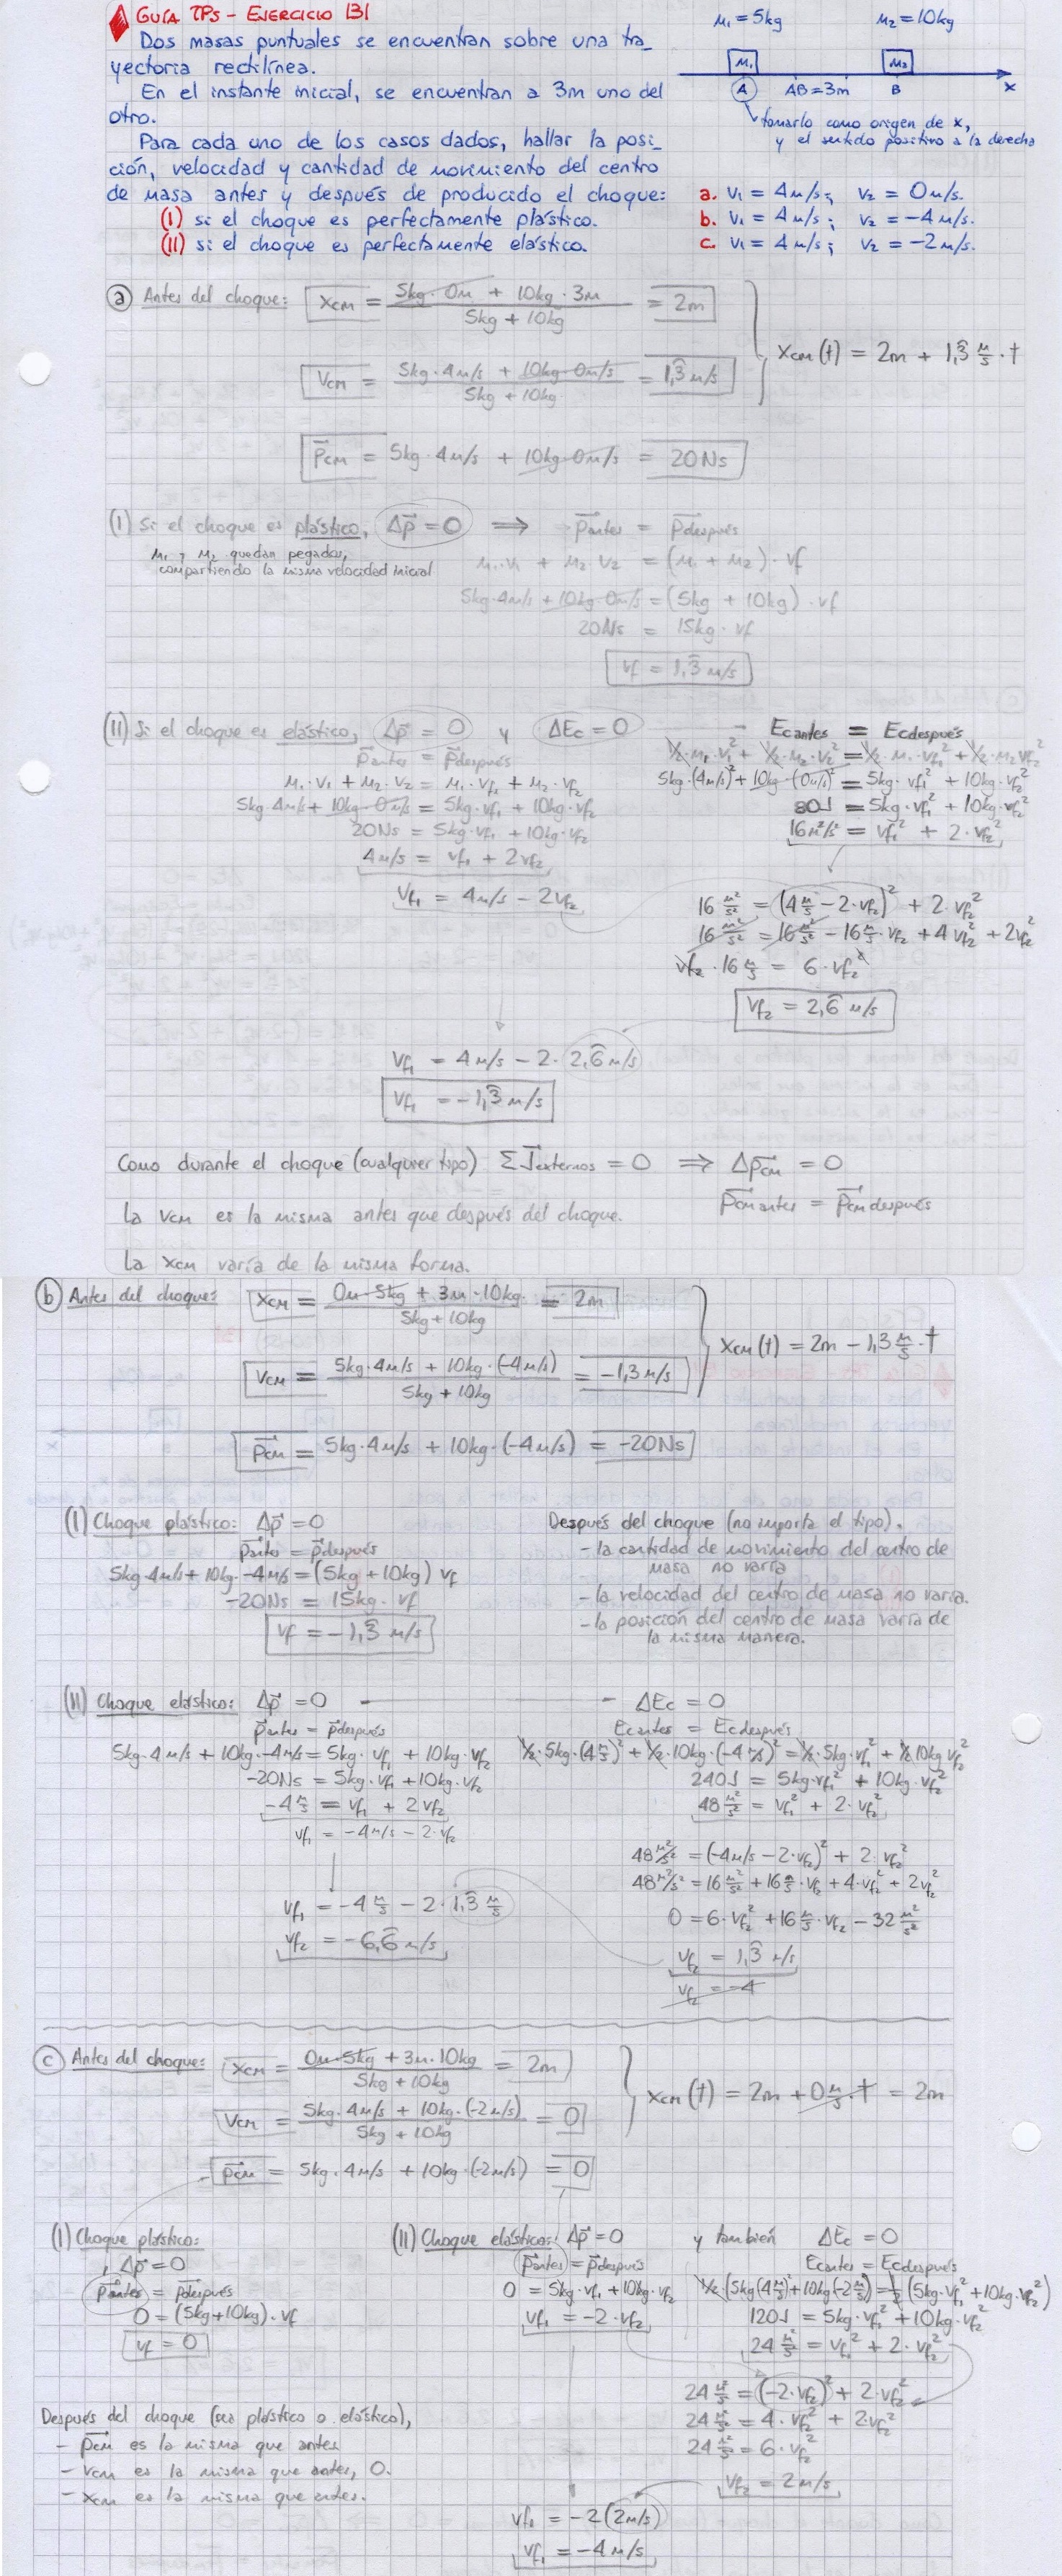 GUÍA TPs - EJERCICIO 131
Dos masas puntuales se encuentran sobre una tra_
yectoria rectilínea.
En el instante inicial, se encuentran a 3m uno del
otro.
Para cada uno de los casos dados, hallar la posi_
ción, velocidad y cantidad de movimiento del centro
de masa antes y después de producido el choque:
(I) si el choque es perfectamente plástico.
(II) si el choque es perfectamente elástico.
M₁ = 5kg M₂ = 10kg
M₁ M₂
A AB = 3m B x
tomarlo como origen de x,
y el sentido positivo a la derecha
a. v₁ = 4m/s; v₂ = 0m/s.
b. v₁ = 4m/s; v₂ = -4m/s.
c. v₁ = 4m/s; v₂ = -2m/s.
a Antes del choque: xcm = (5kg·0m + 10kg·3m)/(5kg + 10kg) = 2m
Vcm = (5kg·4m/s + 10kg·0m/s)/(5kg + 10kg) = 1,3̂ m/s
xcm(t) = 2m + 1,3̂ m/s · t
p⃗cm = 5kg·4m/s + 10kg·0m/s = 20Ns
(I) Si el choque es plástico, Δp⃗ = 0 ⟹ p⃗antes = p⃗después
M₁ y M₂ quedan pegados,
compartiendo la misma velocidad inicial
M₁·v₁ + M₂·v₂ = (M₁ + M₂)·vf
5kg·4m/s + 10kg·0m/s = (5kg + 10kg)·vf
20Ns = 15kg·vf
vf = 1,3̂ m/s
(II) Si el choque es elástico, Δp⃗ = 0 y ΔEc = 0
p⃗antes = p⃗después
M₁·v₁ + M₂·v₂ = M₁·vf₁ + M₂·vf₂
5kg·4m/s + 10kg·0m/s = 5kg·vf₁ + 10kg·vf₂
20Ns = 5kg·vf₁ + 10kg·vf₂
4m/s = vf₁ + 2vf₂
Vf₁ = 4m/s - 2vf₂
Ecantes = Ecdespués
½·M₁·v₁² + ½·M₂·v₂² = ½·M₁·vf₁² + ½·M₂·vf₂²
5kg·(4m/s)² + 10kg·(0m/s)² = 5kg·vf₁² + 10kg·vf₂²
80J = 5kg·vf₁² + 10kg·vf₂²
16m²/s² = vf₁² + 2·vf₂²
16 m²/s² = (4 m/s - 2·vf₂)² + 2·vf₂²
16 m²/s² = 16 m²/s² - 16 m/s·vf₂ + 4vf₂² + 2vf₂²
vf₂·16 m/s = 6·vf₂²
Vf₂ = 2,6̂ m/s
Vf₁ = 4m/s - 2·2,6̂ m/s
Vf₁ = -1,3̂ m/s
Como durante el choque (cualquier tipo) ΣJ⃗externos = 0 ⟹ Δp⃗cm = 0
p⃗cm antes = p⃗cm después
La vcm es la misma antes que después del choque.
La xcm varía de la misma forma.
b Antes del choque: xcm = (0m·5kg + 3m·10kg)/(5kg + 10kg) = 2m
Vcm = (5kg·4m/s + 10kg·(-4m/s))/(5kg + 10kg) = -1,3 m/s
xcm(t) = 2m - 1,3 m/s · t
p⃗cm = 5kg·4m/s + 10kg·(-4m/s) = -20Ns
(I) Choque plástico: Δp⃗ = 0
p⃗antes = p⃗después
5kg·4m/s + 10kg·-4m/s = (5kg + 10kg) vf
-20Ns = 15kg·vf
vf = -1,3̂ m/s
Después del choque (no importa el tipo).
- la cantidad de movimiento del centro de
masa no varía
- la velocidad del centro de masa no varía.
- la posición del centro de masa varía de
la misma manera.
(II) Choque elástico: Δp⃗ = 0 - ΔEc = 0
p⃗antes = p⃗después
5kg·4m/s + 10kg·-4m/s = 5kg·vf₁ + 10kg·vf₂
-20Ns = 5kg·vf₁ + 10kg·vf₂
-4 m/s = vf₁ + 2vf₂
vf₁ = -4m/s - 2·vf₂
Ecantes = Ecdespués
½·5kg·(4 m/s)² + ½·10kg·(-4 m/s)² = ½·5kg·vf₁² + ½ 10kg vf₂²
240J = 5kg·vf₁² + 10kg·vf₂²
48 m²/s² = vf₁² + 2·vf₂²
48 m²/s² = (-4m/s - 2·vf₂)² + 2·vf₂²
48 m²/s² = 16 m²/s² + 16 m/s·vf₂ + 4·vf₂² + 2vf₂²
0 = 6·vf₂² + 16 m/s·vf₂ - 32 m²/s²
vf₂ = 1,3̂ m/s
vf₂ = -4
vf₁ = -4 m/s - 2·1,3̂ m/s
vf₂ = -6,6̂ m/s
c Antes del choque: xcm = (0m·5kg + 3m·10kg)/(5kg + 10kg) = 2m
Vcm = (5kg·4m/s + 10kg·(-2m/s))/(5kg + 10kg) = 0
xcm(t) = 2m + 0 m/s · t = 2m
p⃗cm = 5kg·4m/s + 10kg·(-2m/s) = 0
(I) Choque plástico:
Δp⃗ = 0
p⃗antes = p⃗después
0 = (5kg + 10kg)·vf
vf = 0
(II) Choque elástico: Δp⃗ = 0 y también ΔEc = 0
p⃗antes = p⃗después
0 = 5kg·vf₁ + 10kg·vf₂
vf₁ = -2·vf₂
Ecantes = Ecdespués
½·(5kg(4 m/s)² + 10kg(-2 m/s)²) = ½(5kg·vf₁² + 10kg·vf₂²)
120J = 5kg·vf₁² + 10kg·vf₂²
24 m²/s² = vf₁² + 2·vf₂²
24 m²/s² = (-2·vf₂)² + 2·vf₂²
24 m²/s² = 4·vf₂² + 2·vf₂²
24 m²/s² = 6·vf₂²
Vf₂ = 2m/s
vf₁ = -2(2m/s)
vf₁ = -4m/s
Después del choque (sea plástico o elástico),
- p⃗cm es la misma que antes
- vcm es la misma que antes, 0.
- xcm es la misma que antes.